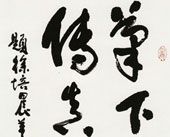 筆下
傳真
題徐培晨